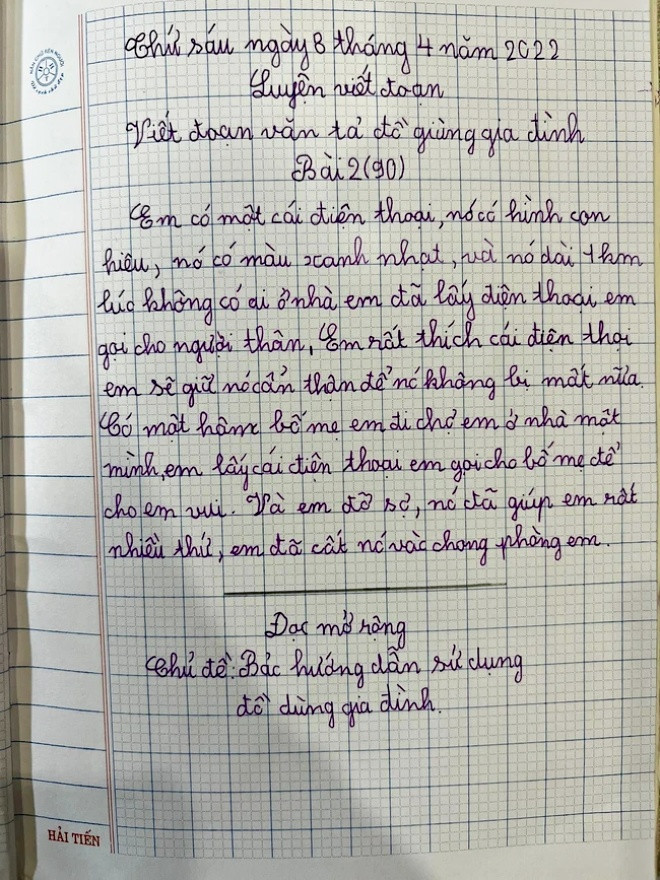 Thứ sáu ngày 8 tháng 4 năm 2022
Luyện viết đoạn
Viết đoạn văn tả đồ giùng gia đình
Bài 2 (90)
Em có một cái điện thoại, nó có hình con
hiêu, nó có màu xanh nhạt, và nó dài 1 km
lúc không có ai ở nhà em đã lấy điện thoại em
gọi cho người thân, Em rất thích cái điện thoại
em sẽ giữ nó cẩn thận để nó không bị mất nữa.
Có một hôm bố mẹ em đi chợ em ở nhà một
mình, em lấy cái điện thoại em gọi cho bố mẹ để
cho em vui. Và em đỡ sợ, nó đã giúp em rất
nhiều thứ, em đã cất nó vào chong phòng em.
Đọc mở rộng
Chủ đề: Bảc hướng dẫn sử dụng
đồ dùng gia đình.
HẢI TIẾN